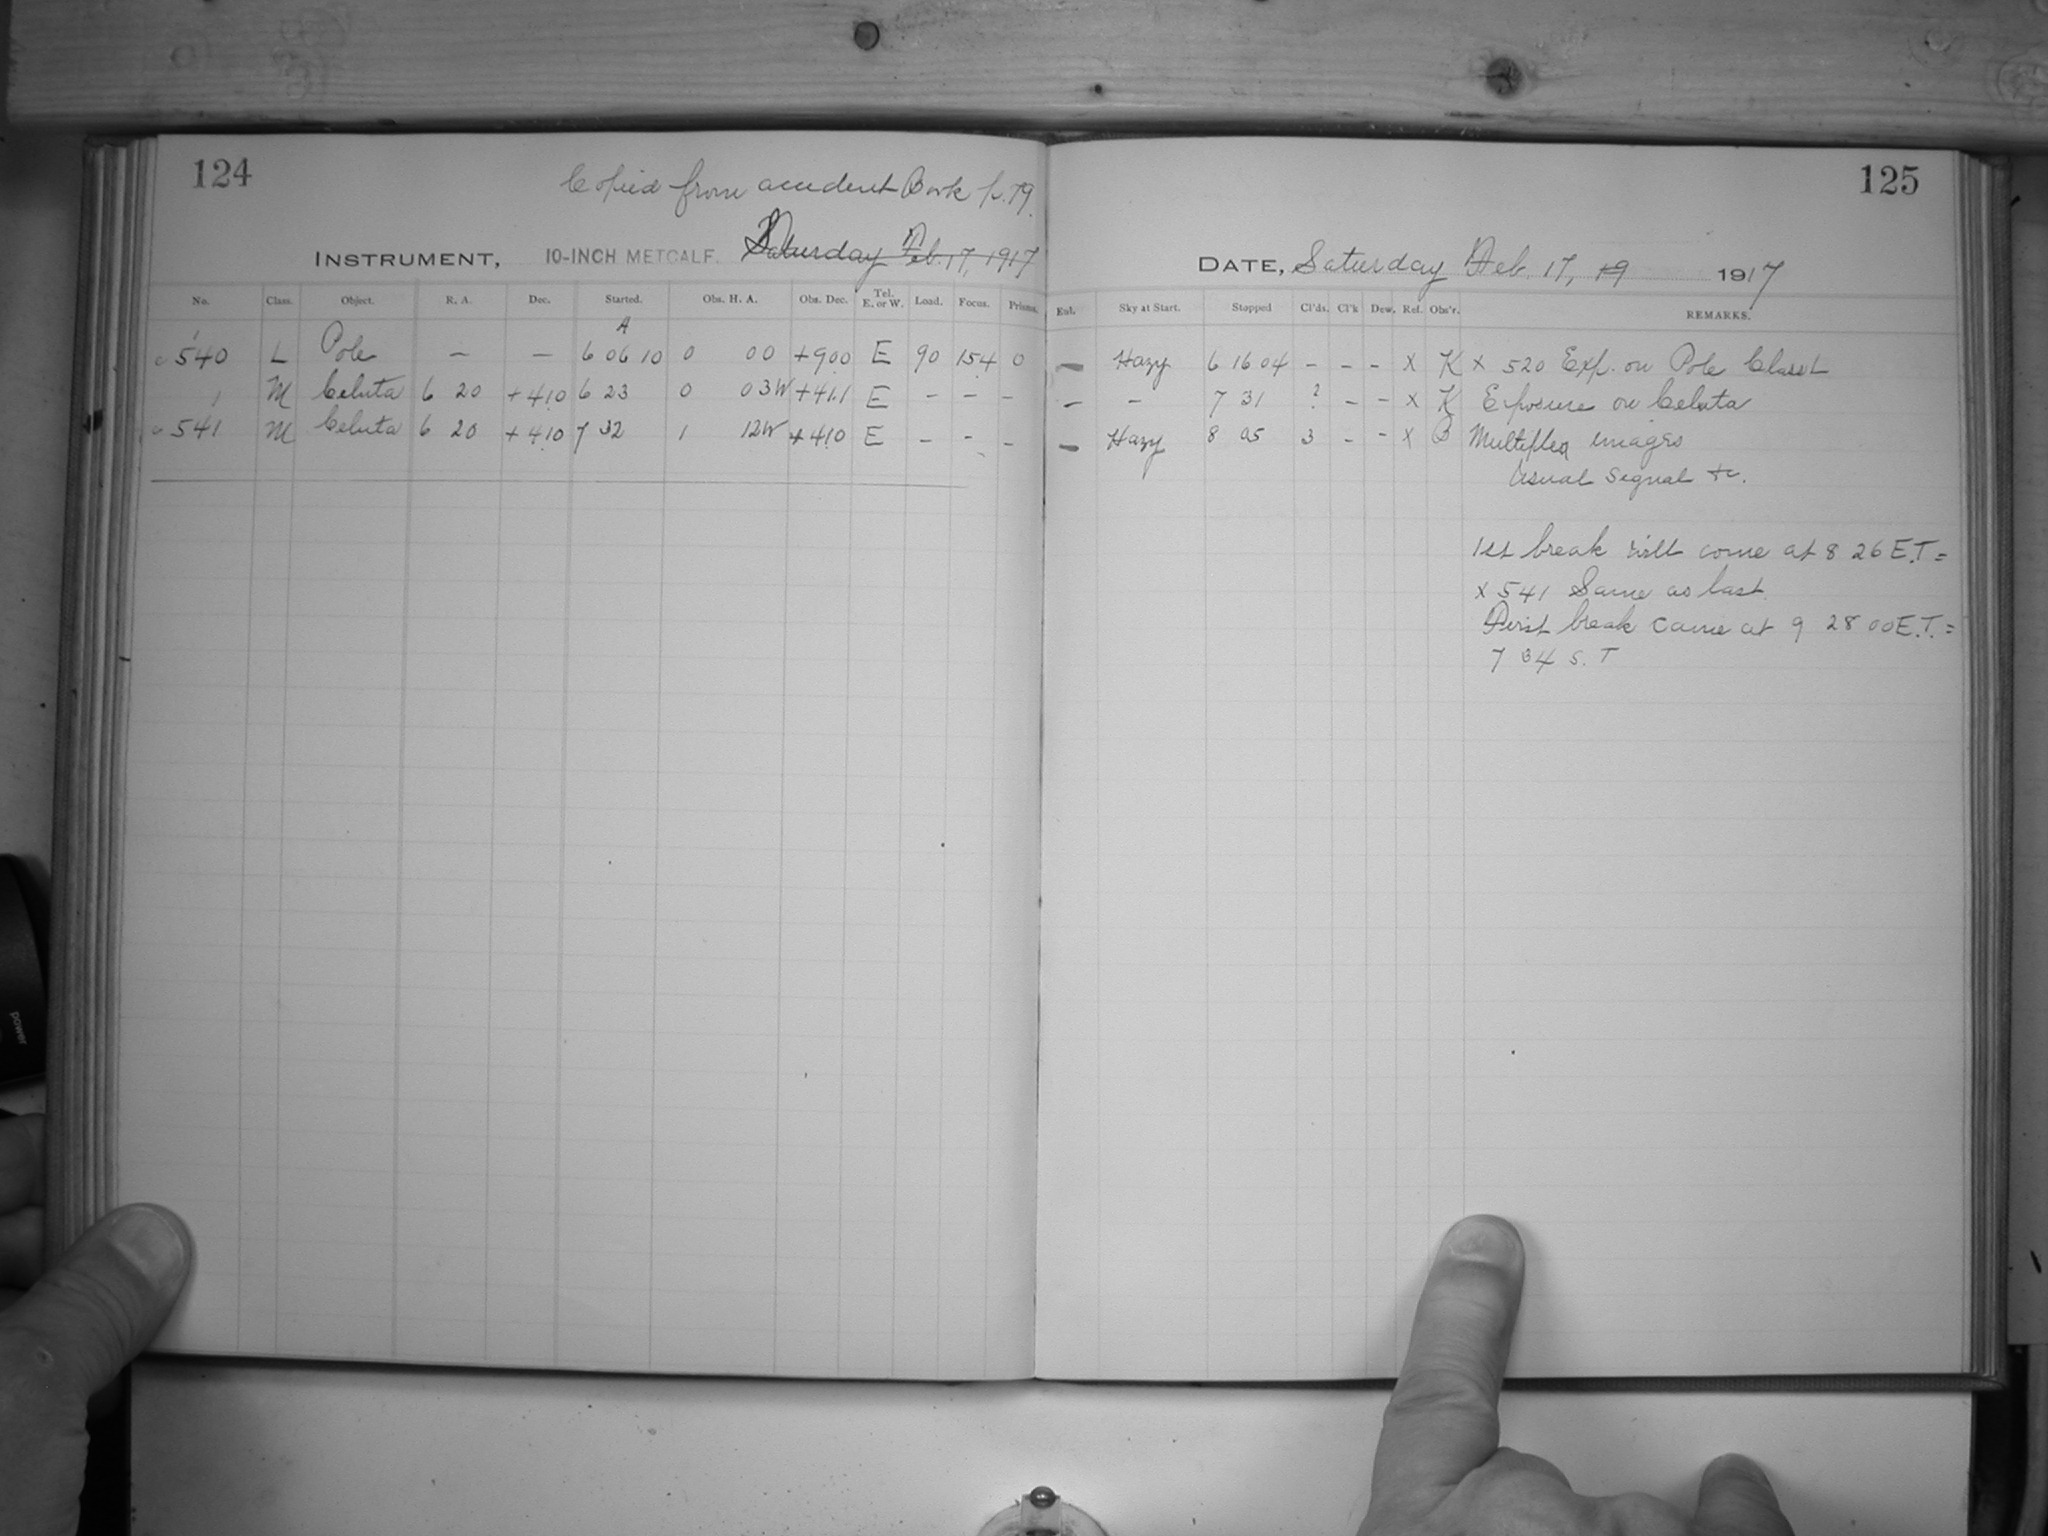 124
Copied from accident Book p. 79.
INSTRUMENT, 10-INCH METCALF. Saturday Feb. 17, 1917
No. Class. Object. R. A. Dec. Started. Obs. H. A. Obs. Dec. Tel. E. or W. Load. Focus. Prisms.
A
540 L Pole — — 6 06 10 0 00 +90.0 E 90 15.4 0
M Celuta 6 20 +41.0 6 23 0 03W +41.1 E - - -
541 M Celuta 6 20 +41.0 7 32 1 12W +41.0 E - - -
125
DATE, Saturday Feb. 17, 19 1917
Ent. Sky at Start. Stopped Cl'ds. Cl'k Dew. Rel. Obs'r. REMARKS.
— Hazy 6 16 04 - - - X K X 520 Exp. on Pole Class L
- - 7 31 ? - - X K Exposure on Celuta
- Hazy 8 05 3 - - X B Multiplied images
Usual signal &c.
1st break will come at 8 26 E.T. =
X 541 Same as last.
First break came at 9 28 00 E.T. =
7 34 S. T
power